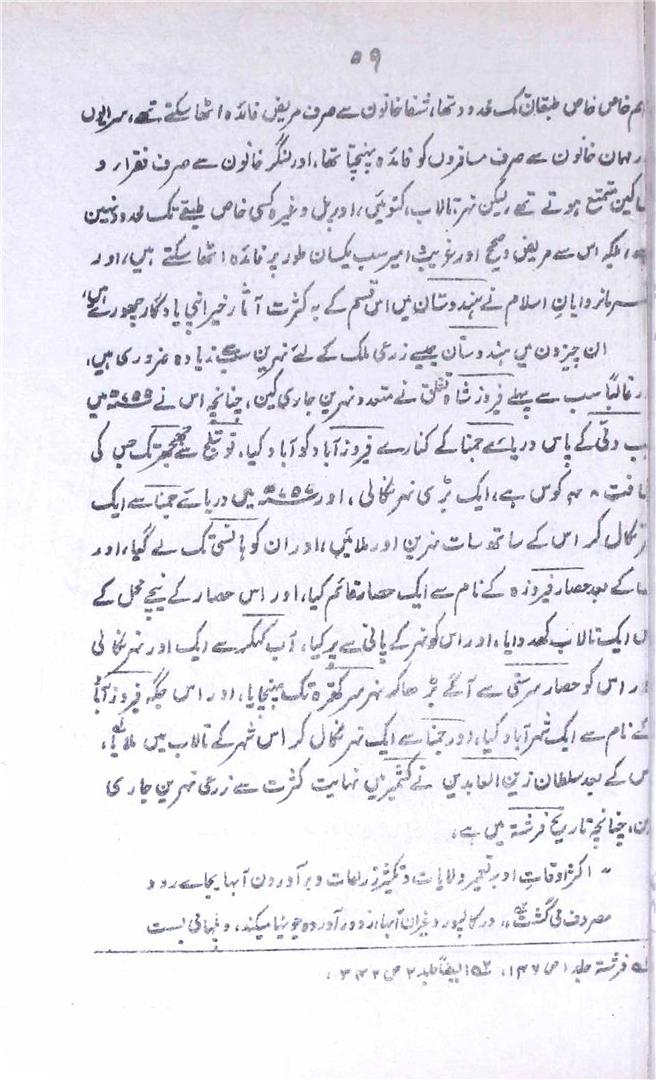 ۵۹
تاہم خاص خاص طبقات تک محدود تھا، شفاخانون سے صرف مریض فائدہ اٹھا سکتے تھے، سرایون
اور مہمان خانون سے صرف مسافرون کو فائدہ پہنچتا تھا، اور لنگر خانون سے صرف فقراء و
مساکین متمتع ہوتے تھے، لیکن نہر، تالاب، کنوئین، اور پل وغیرہ کسی خاص طبقے تک محدود نہین
بلکہ اس سے مریض و صحیح اور غریب امیر سب یکسان طور پر فائدہ اٹھا سکتے ہین، اور
فرمانروایانِ اسلام نے ہندوستان مین اس قسم کے بہ کثرت آثار خیر اپنی یادگار چھوڑے ہین،
ان چیزون مین ہندوستان جیسے زرعی ملک کے لئے نہرین سب سے زیادہ ضروری ہین،
اور غالباً سب سے پہلے فیروز شاہ تغلق نے متعدد نہرین جاری کین، چنانچہ اس نے ۷۵۵ھ مین
جب دلّی کے پاس دریائے جمنا کے کنارے فیروزآباد کو آباد کیا، تو ستلج سے جھجھر تک جس کی
مسافت ۴۸ کوس ہے، ایک بڑی نہر نکالی، اور ۷۵۷ھ مین دریائے جمنا سے ایک
نہر نکال کر اس کے ساتھ سات نہرین اور ملائین، اور ان کو ہانسی تک لے گیا، اور
اس کے بعد حصار فیروزہ کے نام سے ایک حصار قائم کیا، اور اس حصار کے نیچے محل کے
پاس ایک تالاب کھدوایا، اور اس کو نہر کے پانی سے پر کیا، آب کھکر سے ایک اور نہر نکالی
اور اس کو حصار سرستی سے آگے بڑھا کر نہر سر کھترہ تک پہنچایا، اور اس جگہ فیروزآباد
کے نام سے ایک شہر آباد کیا، اور جمنا سے ایک نہر نکال کر اس شہر کے تالاب مین ملائی،
اس کے بعد سلطان زین العابدین نے کشمیر مین نہایت کثرت سے زرعی نہرین جاری
کین، چنانچہ تاریخ فرشتہ مین ہے،
" اکثر اوقاتِ او بر تعمیر ولایات و تکثیر زراعات و بر آوردن آبہا بجائے رود
مصروف می گشت، در کالپور وغیران آبہا از دور آوردہ جویہا میکند، و پلہائی بست
لہ فرشتہ جلد ۱ ص ۱۴۶، ۲ہ ایضاً جلد ۲ ص ۳۴۲،